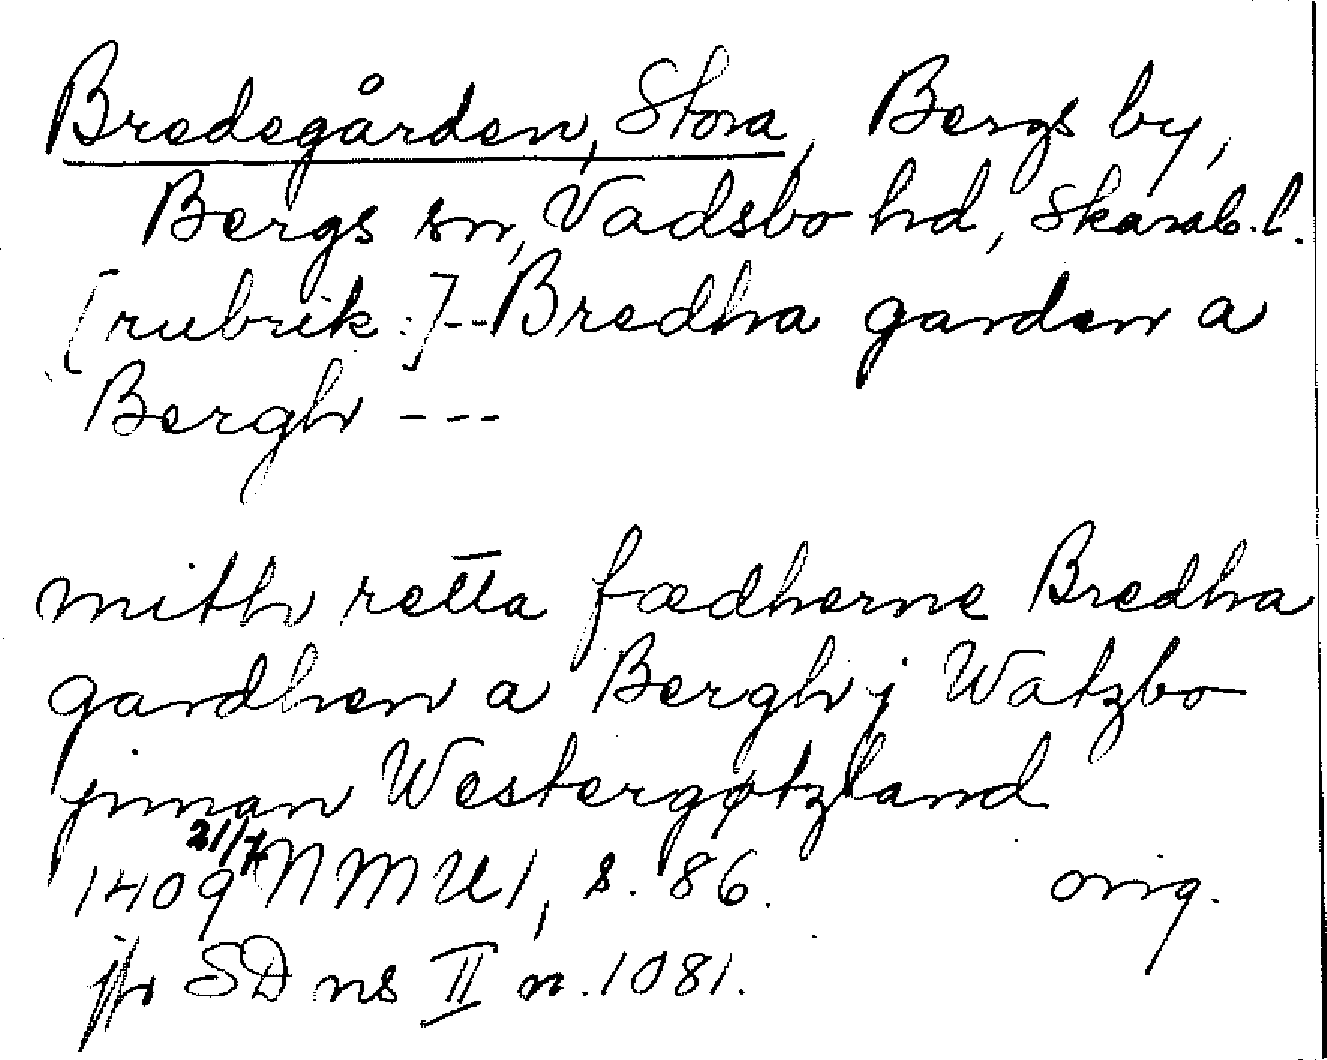 Bredegården, Stora, Bergs by,
Bergs sn, Vadsbo hd, Skarab. l.
[rubrik:]--Bredha garden a
Bergh ---
mith retta fædherne Bredha
gardhen a Bergh j Watzbo
jnnan Westergøtzland
1409 21/7 NMU1, s. 86. orig.
jfr SD ns II n. 1081.